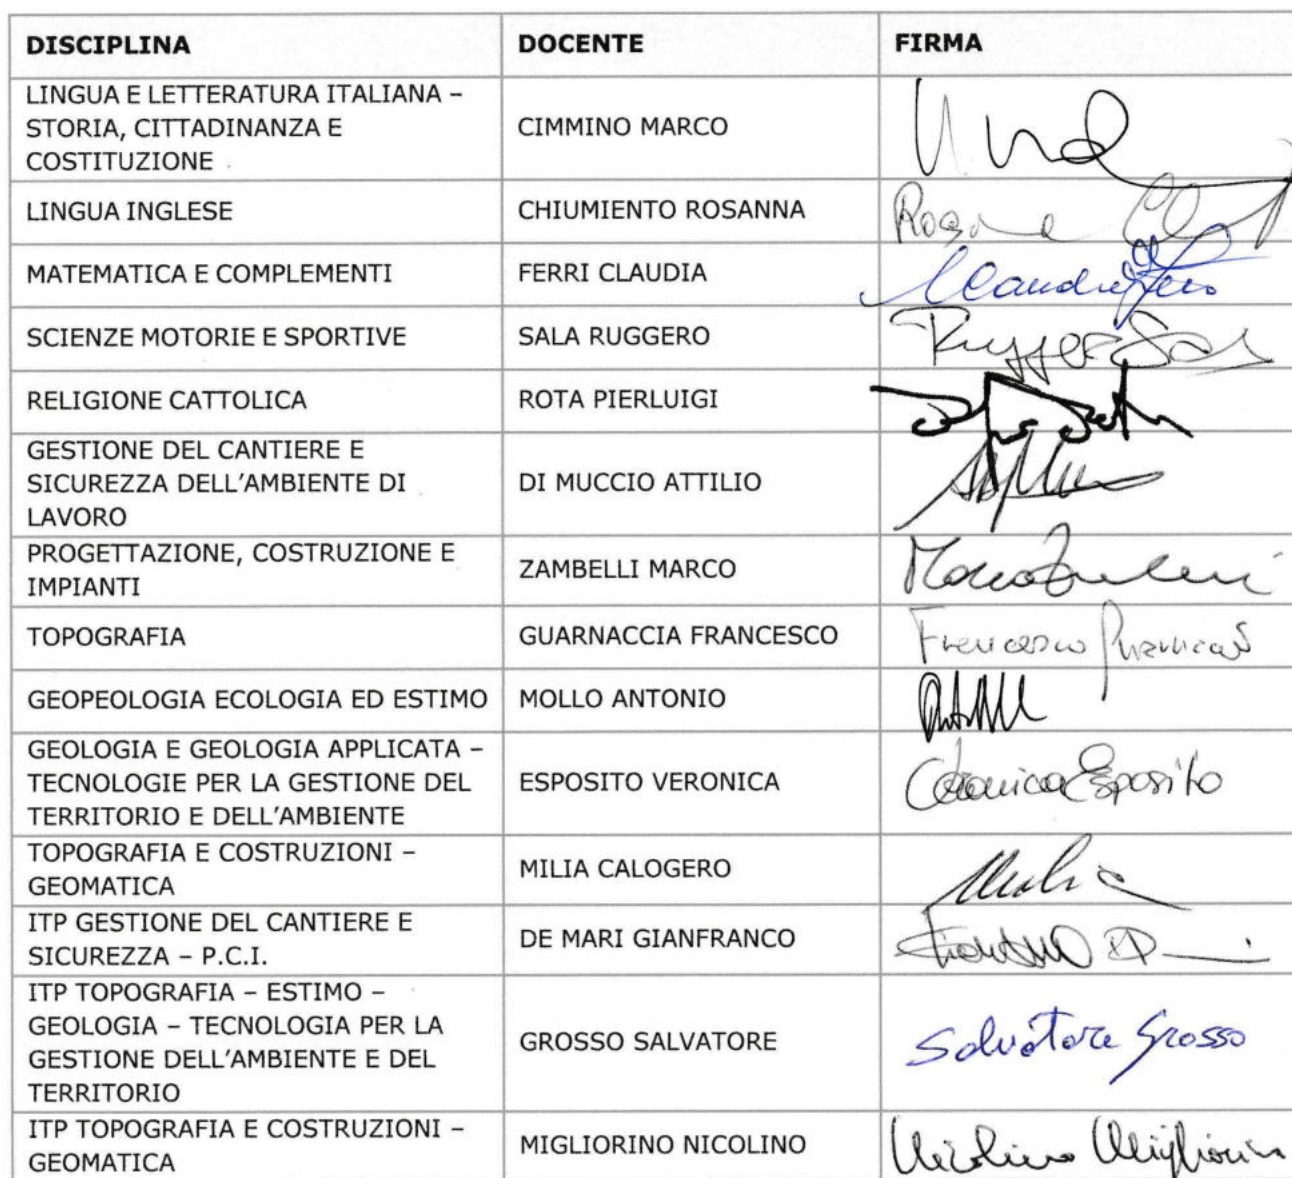 DISCIPLINA DOCENTE FIRMA
LINGUA E LETTERATURA ITALIANA –
STORIA, CITTADINANZA E
COSTITUZIONE
CIMMINO MARCO
LINGUA INGLESE CHIUMIENTO ROSANNA
MATEMATICA E COMPLEMENTI FERRI CLAUDIA
SCIENZE MOTORIE E SPORTIVE SALA RUGGERO
RELIGIONE CATTOLICA ROTA PIERLUIGI
GESTIONE DEL CANTIERE E
SICUREZZA DELL'AMBIENTE DI
LAVORO
DI MUCCIO ATTILIO
PROGETTAZIONE, COSTRUZIONE E
IMPIANTI
ZAMBELLI MARCO
TOPOGRAFIA GUARNACCIA FRANCESCO Francesco
GEOPEOLOGIA ECOLOGIA ED ESTIMO MOLLO ANTONIO
GEOLOGIA E GEOLOGIA APPLICATA –
TECNOLOGIE PER LA GESTIONE DEL
TERRITORIO E DELL'AMBIENTE
ESPOSITO VERONICA Veronica Esposito
TOPOGRAFIA E COSTRUZIONI –
GEOMATICA
MILIA CALOGERO
ITP GESTIONE DEL CANTIERE E
SICUREZZA – P.C.I.
DE MARI GIANFRANCO
ITP TOPOGRAFIA – ESTIMO –
GEOLOGIA – TECNOLOGIA PER LA
GESTIONE DELL'AMBIENTE E DEL
TERRITORIO
GROSSO SALVATORE Salvatore Grosso
ITP TOPOGRAFIA E COSTRUZIONI –
GEOMATICA
MIGLIORINO NICOLINO Nicolino Migliorino